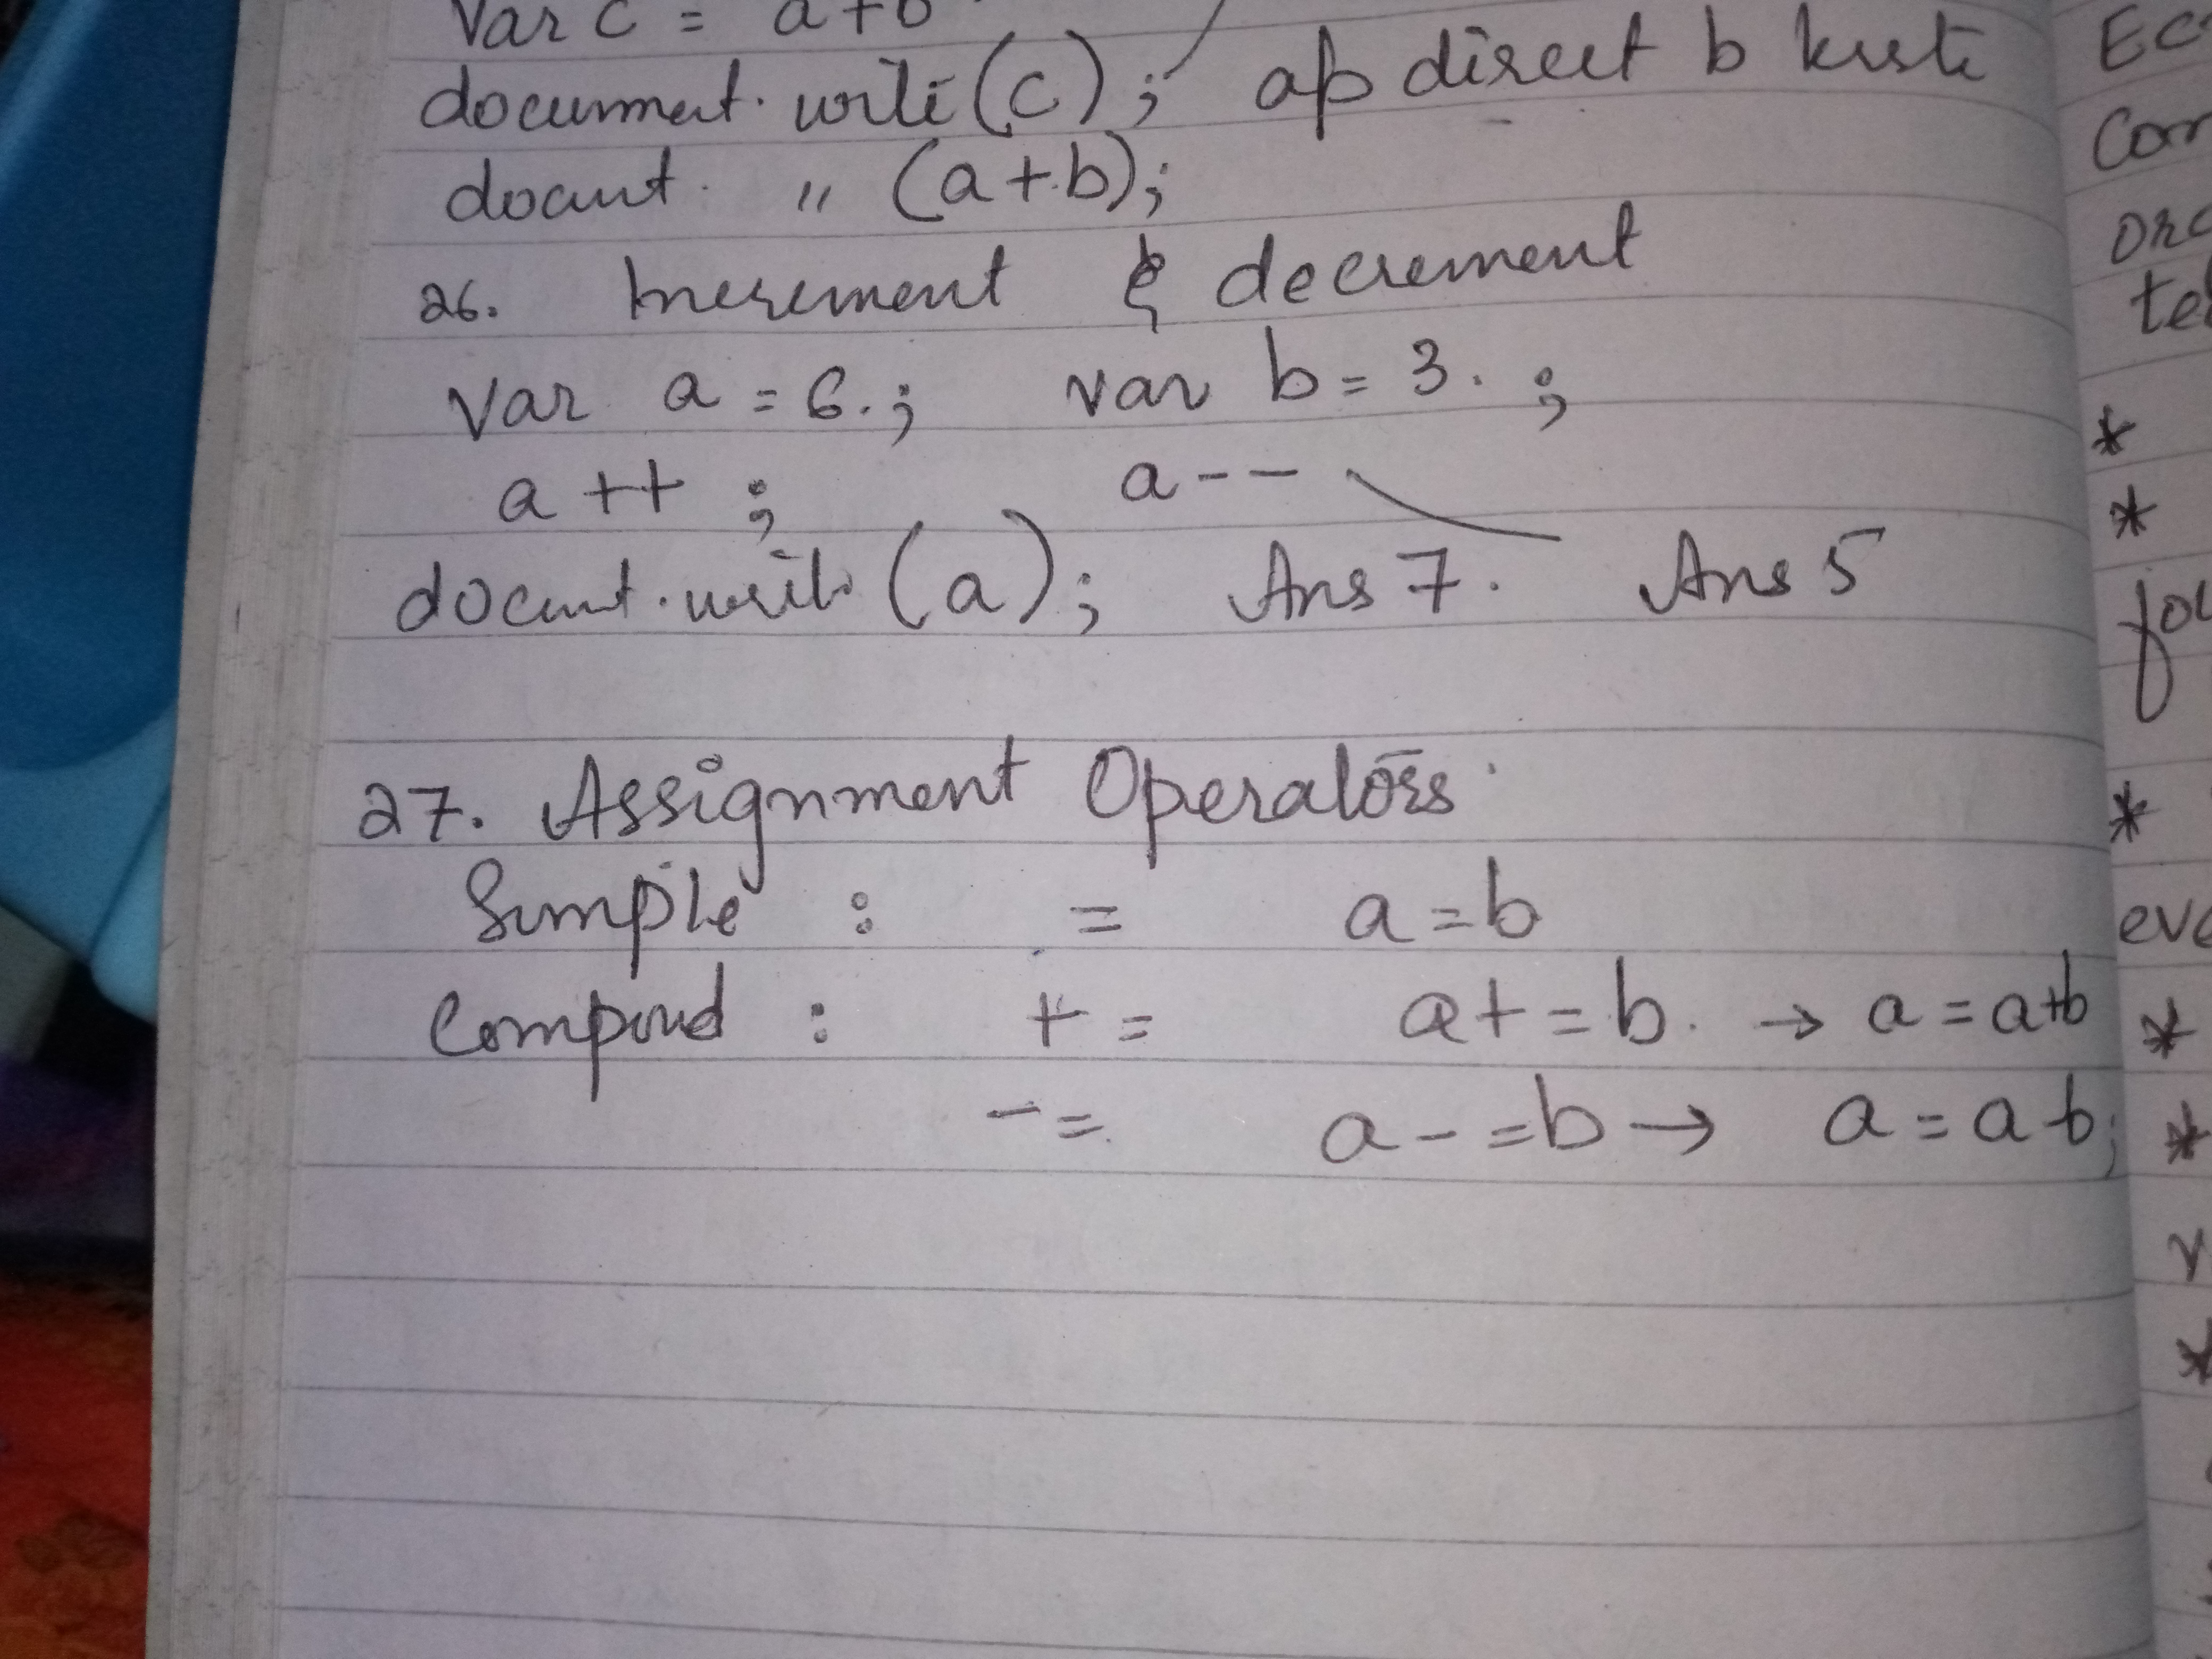 Var c = a+b
document.write(c); ap direct b krste
docunt. " (a+b);
26. Increment & decrement
Var a = 6.; var b = 3. ;
a ++ ; a --
docunt.write (a); Ans 7. Ans 5
27. Assignment Operators.
Simple : = a = b
Compound : + = a+ = b. → a = a+b
- = a - = b → a = a-b;
Ec
Com
orc
te
*
*
fou
*
eve
*
*
*